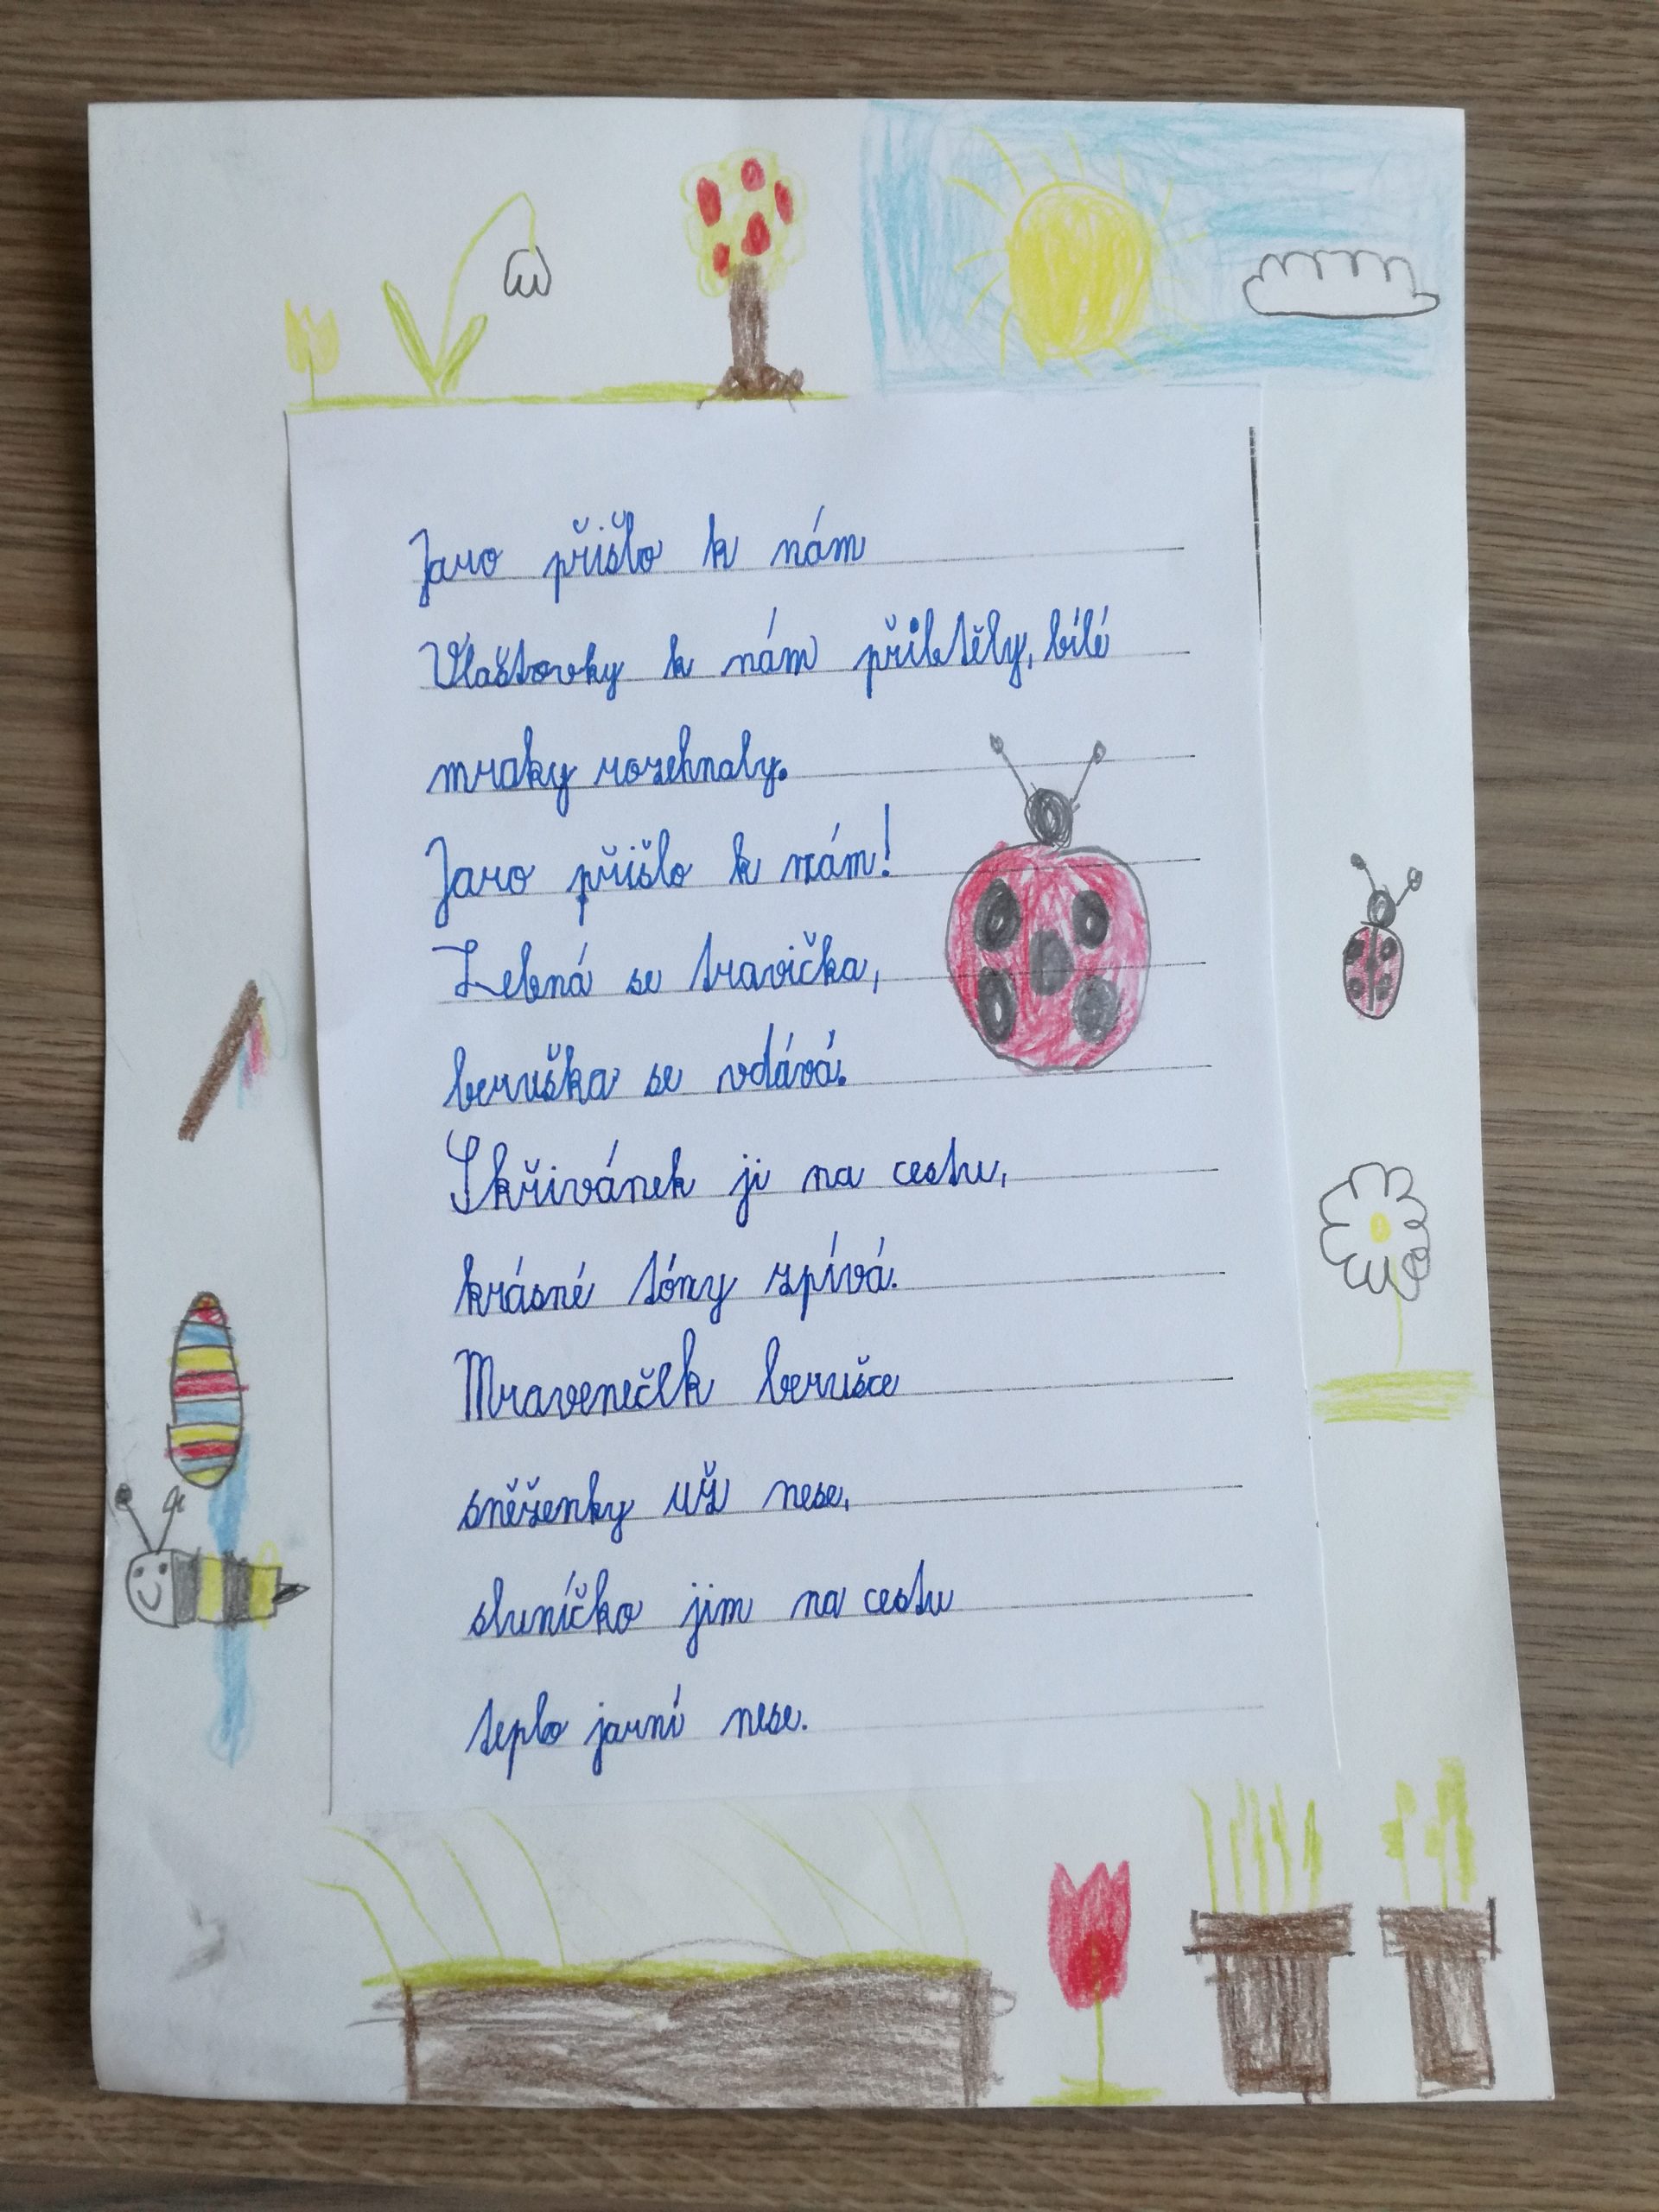 Jaro přišlo k nám
Vlaštovky k nám přiletěly, bílé
mraky rozehnaly.
Jaro přišlo k nám!
Zelená se travička,
beruška se vdává.
Skřivánek ji na cestu,
krásné tóny zpívá.
Mraveneček berušce
sněženky už nese,
sluníčko jim na cestu
teplo jarní nese.